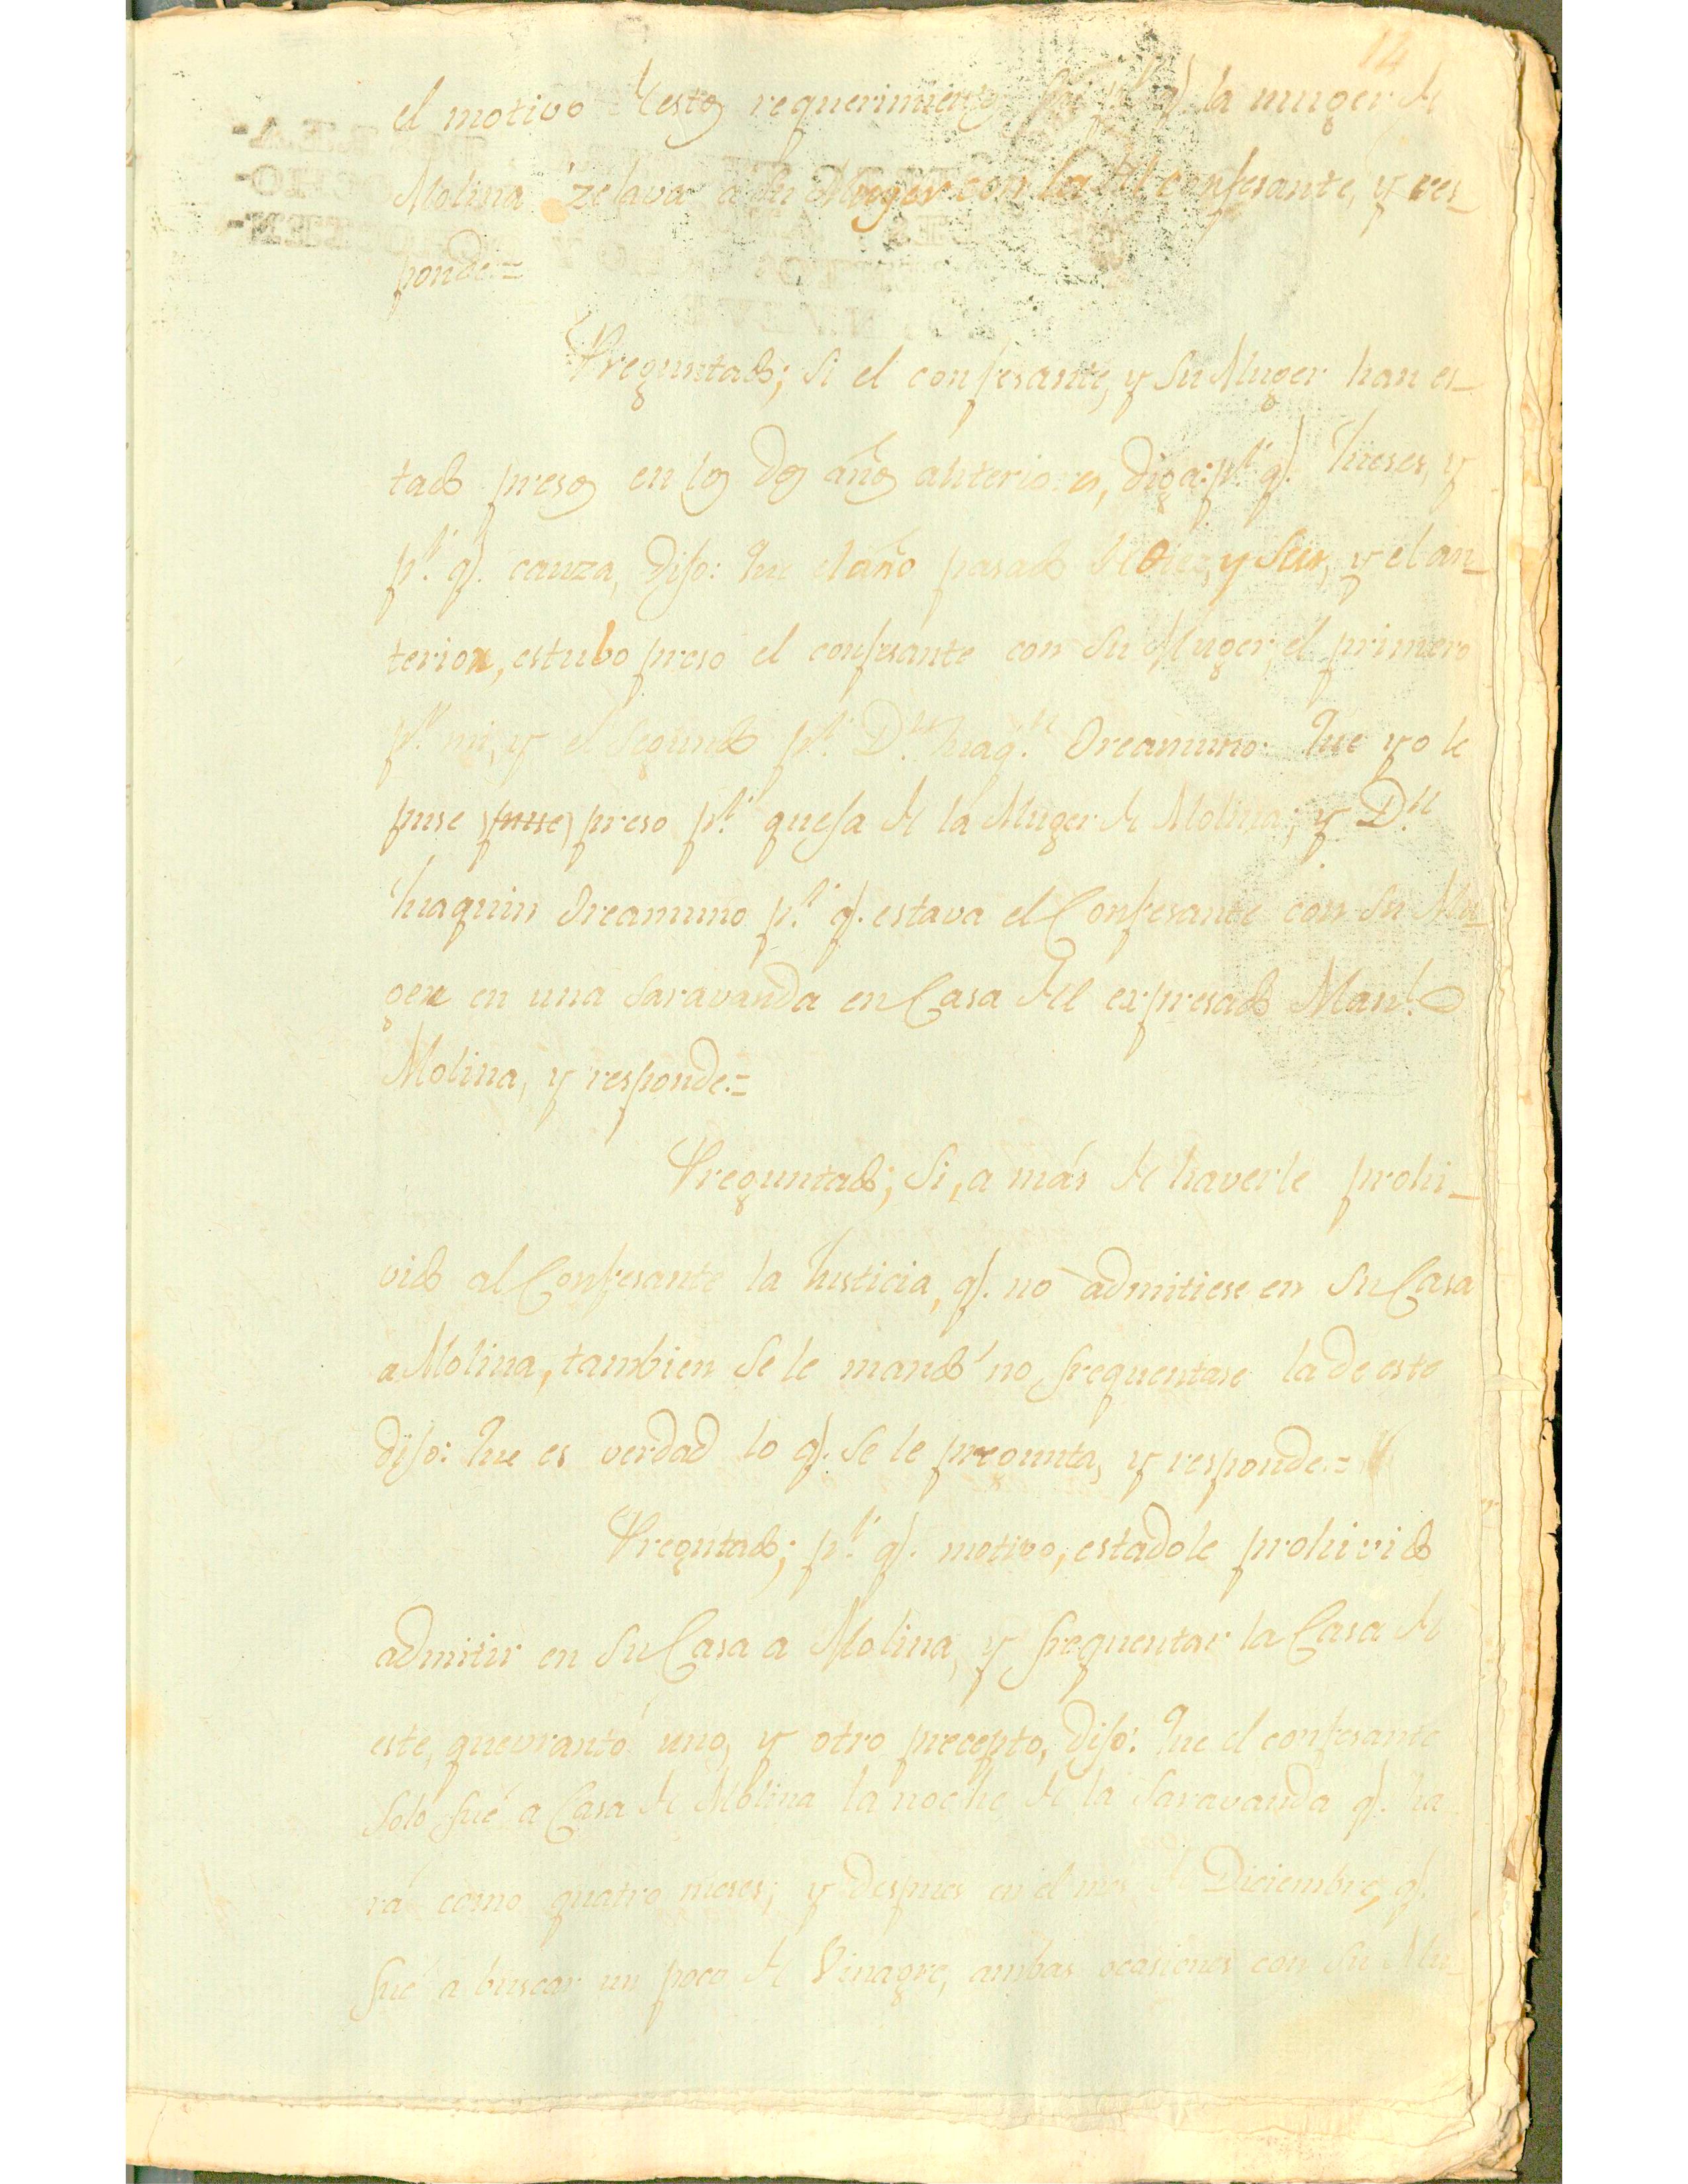 14
el motivo de estos requerimientos fue p.r q.e la muger de
Molina zelava a su Muger con la del confesante, y res-
ponde.=
Preguntado; si el confesante, y su Muger han es-
tado presos en los dos años anteriores, diga: p.r q.e Jueses, y
p.r q.e cauza, dijo: Que el año pasado de diez, y seis, y el an-
terior, estubo preso el confesante con su Muger, el primero
p.r mi, y el segundo p.r D.n Juaq.n Oreamuno: Que yo le
puse (puse) preso p.r quesa de la Muger de Molina; y D.n
Juaquin Oreamuno p.r q.e estava el Confesante con su Mu-
ger en una saravanda en Casa del expresado Man.l
Molina, y responde.=
Preguntado; si, a más de haverle prohi-
vido al Confesante la Justicia, q.e no admitiese en su Casa
a Molina, tambien se le mandó no frequentase la de este
dijo: Que es verdad lo q.e se le pregunta, y responde.=
Pregutado; p.r q.e motivo, estadole prohivido
admitir en su Casa a Molina, y frequentar la Casa de
este, quevrantó uno, y otro precepto, dijo: Que el confesante
solo fué a Casa de Molina la noche de la saravanda q.e ha
rá como quatro meses; y despues en el mes de Diciembre, q.e
fué a buscar un poco de Vinagre, ambas ocasiones con su Mu-